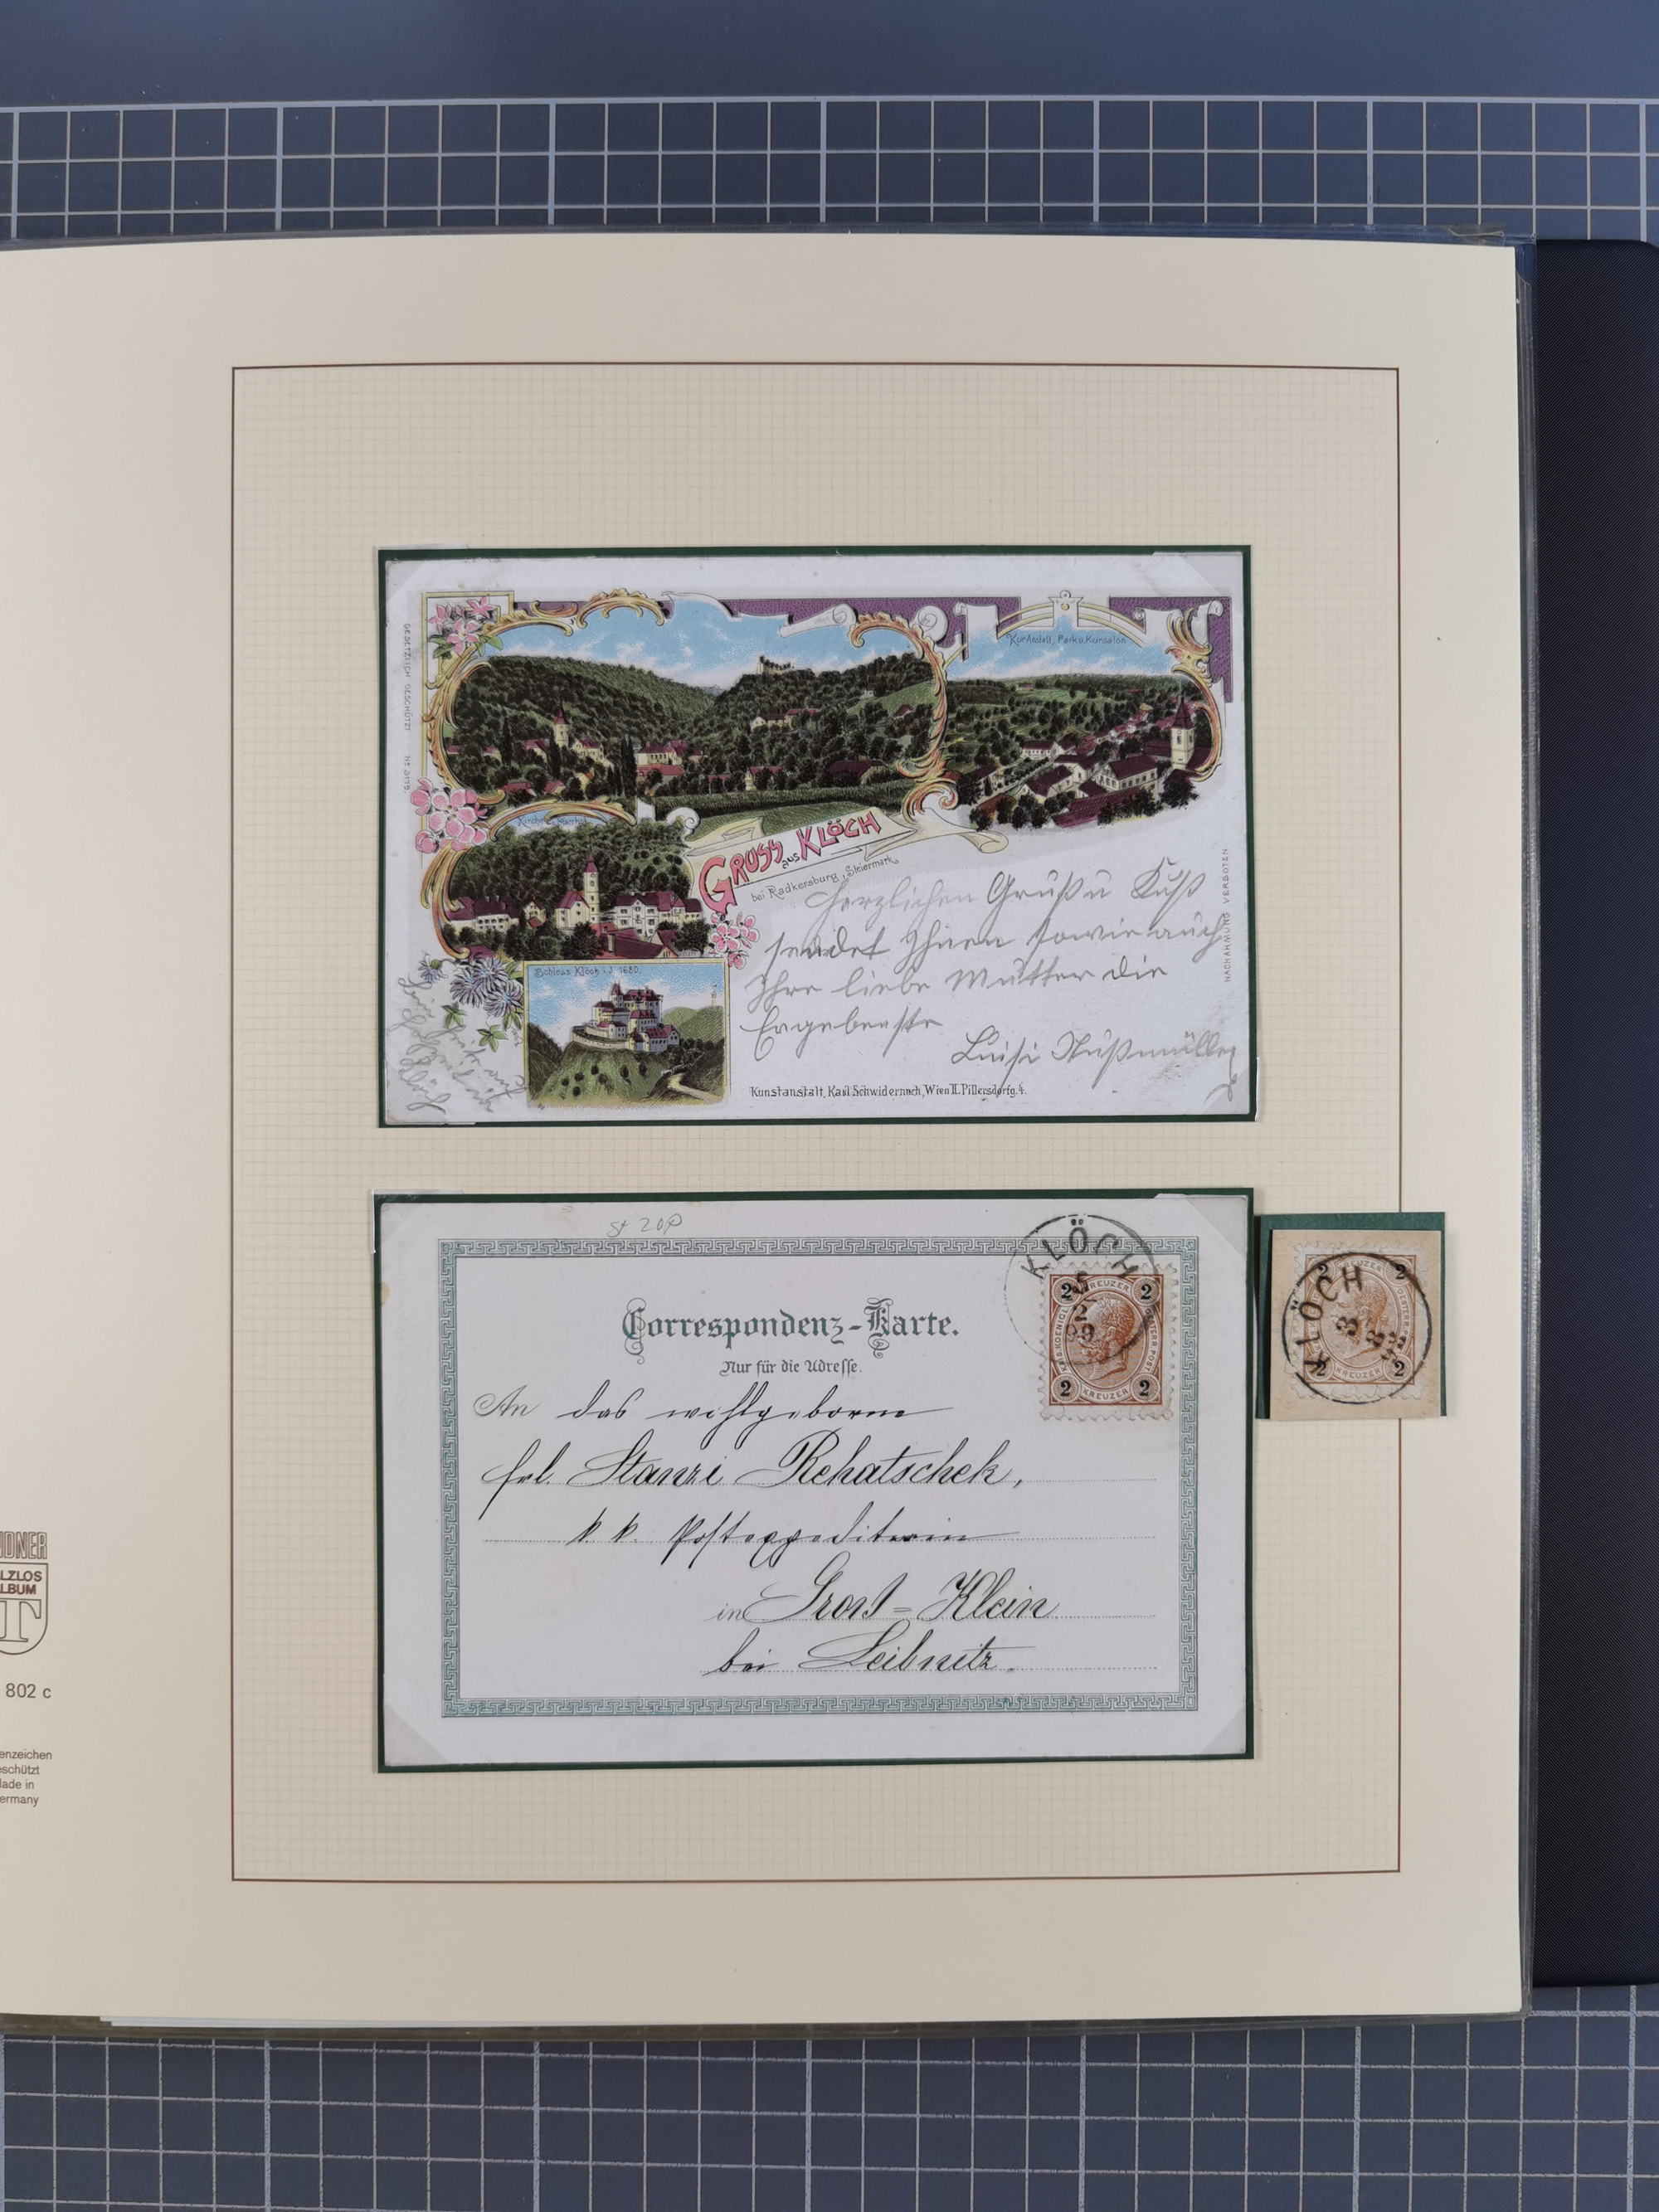 GESETZLICH GESCHÜTZT
KurAnstalt, Park u. Kursalon
Kirche u. Pfarrhof
GRUSS aus KLÖCH
bei Radkersburg, Steiermark
Herzlichen Gruß u Kuß
sendet Ihnen sowie auch
Ihre liebe Mutter die
Ergebenste
Luisi Nußmüller
Schloss Klöch i. J. 1680.
NACHAHMUNG VERBOTEN
Kunstanstalt, Karl Schwidernoch, Wien II. Pillersdorfg. 4.
St 20P
Correspondenz-Karte.
Nur für die Adresse.
An das wohlgeborne
Frl. Stanzi Rehatschek,
k. k. Postexpeditorin
in Gross-Klein
bei Leibnitz.
KLÖCH
2 KREUZER 2
KAIS. KOENIGL. OESTERR. POST.
2 KREUZER 2
KLÖCH
3
8
2 KREUZER 2
OESTERR. POST
2 KREUZER 2
DNER
LZLOS
LBUM
T
802 c
enzeichen
eschützt
lade in
ermany